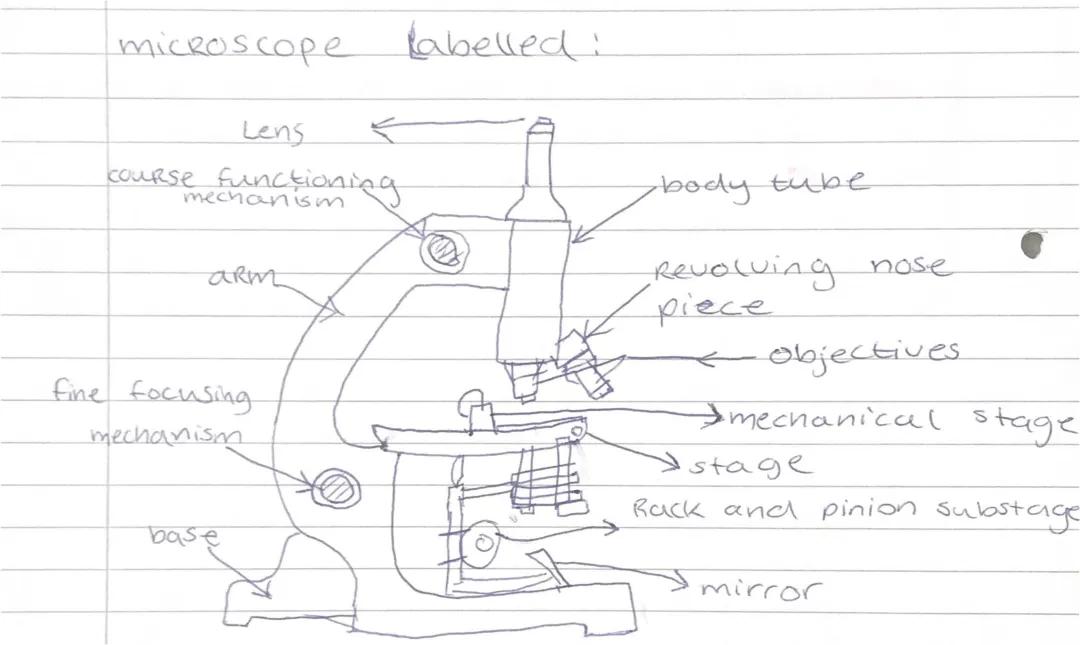 microscope Labelled:
Lens
course functioning
mechanism
body tube
arm
Revolving nose
piece
objectives
fine focusing
mechanism
mechanical stage
stage
Rack and pinion substage
base
mirror